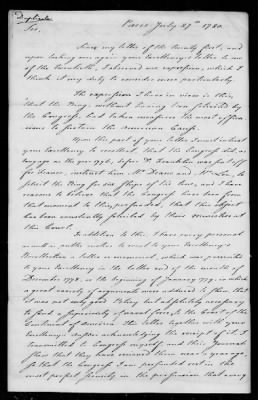 Duplicate
Paris July 27th 1780.
Sir,
Since my letter of the twenty first, and
upon looking over again your Excellency's letter to me
of the twentieth, I observed one expression, which I
think it my duty to consider more particularly.
The expression I have in view is this,
that the King, without having been solicited by
the Congress, had taken measures the most effica-
cious to sustain the American Cause.
Upon this part of your letter I must entreat
your Excellency to recollect that the Congress did as
long ago as the year 1776, before Dr Franklin was sent off
for France, instruct him, Mr Deane and Mr Lee, to
solicit the King for six Ships of the line, and I have
reason to believe that the Congress have been from
that moment to this persuaded, that this object
has been constantly solicited by those Ministers at
this Court.
In addition to this I have every personal
as well as public motive to recall to your Excellency's
Recollection a letter or memorial, which was presented
to your Excellency in the latter end of the month of
December 1778, or the beginning of January 1779, in which
a great variety of arguments were adduced to shew that
it was not only good Policy but absolutely necessary
to send a superiority of naval force, to the Coast of the
Continent of America. This letter together with your
Excellency's answer acknowledging the receipt of it, I
transmitted to Congress myself, and their Journals
shew that they have received them near a year ago,
so that the Congress I am persuaded rest in the
most perfect security in the persuasion that every